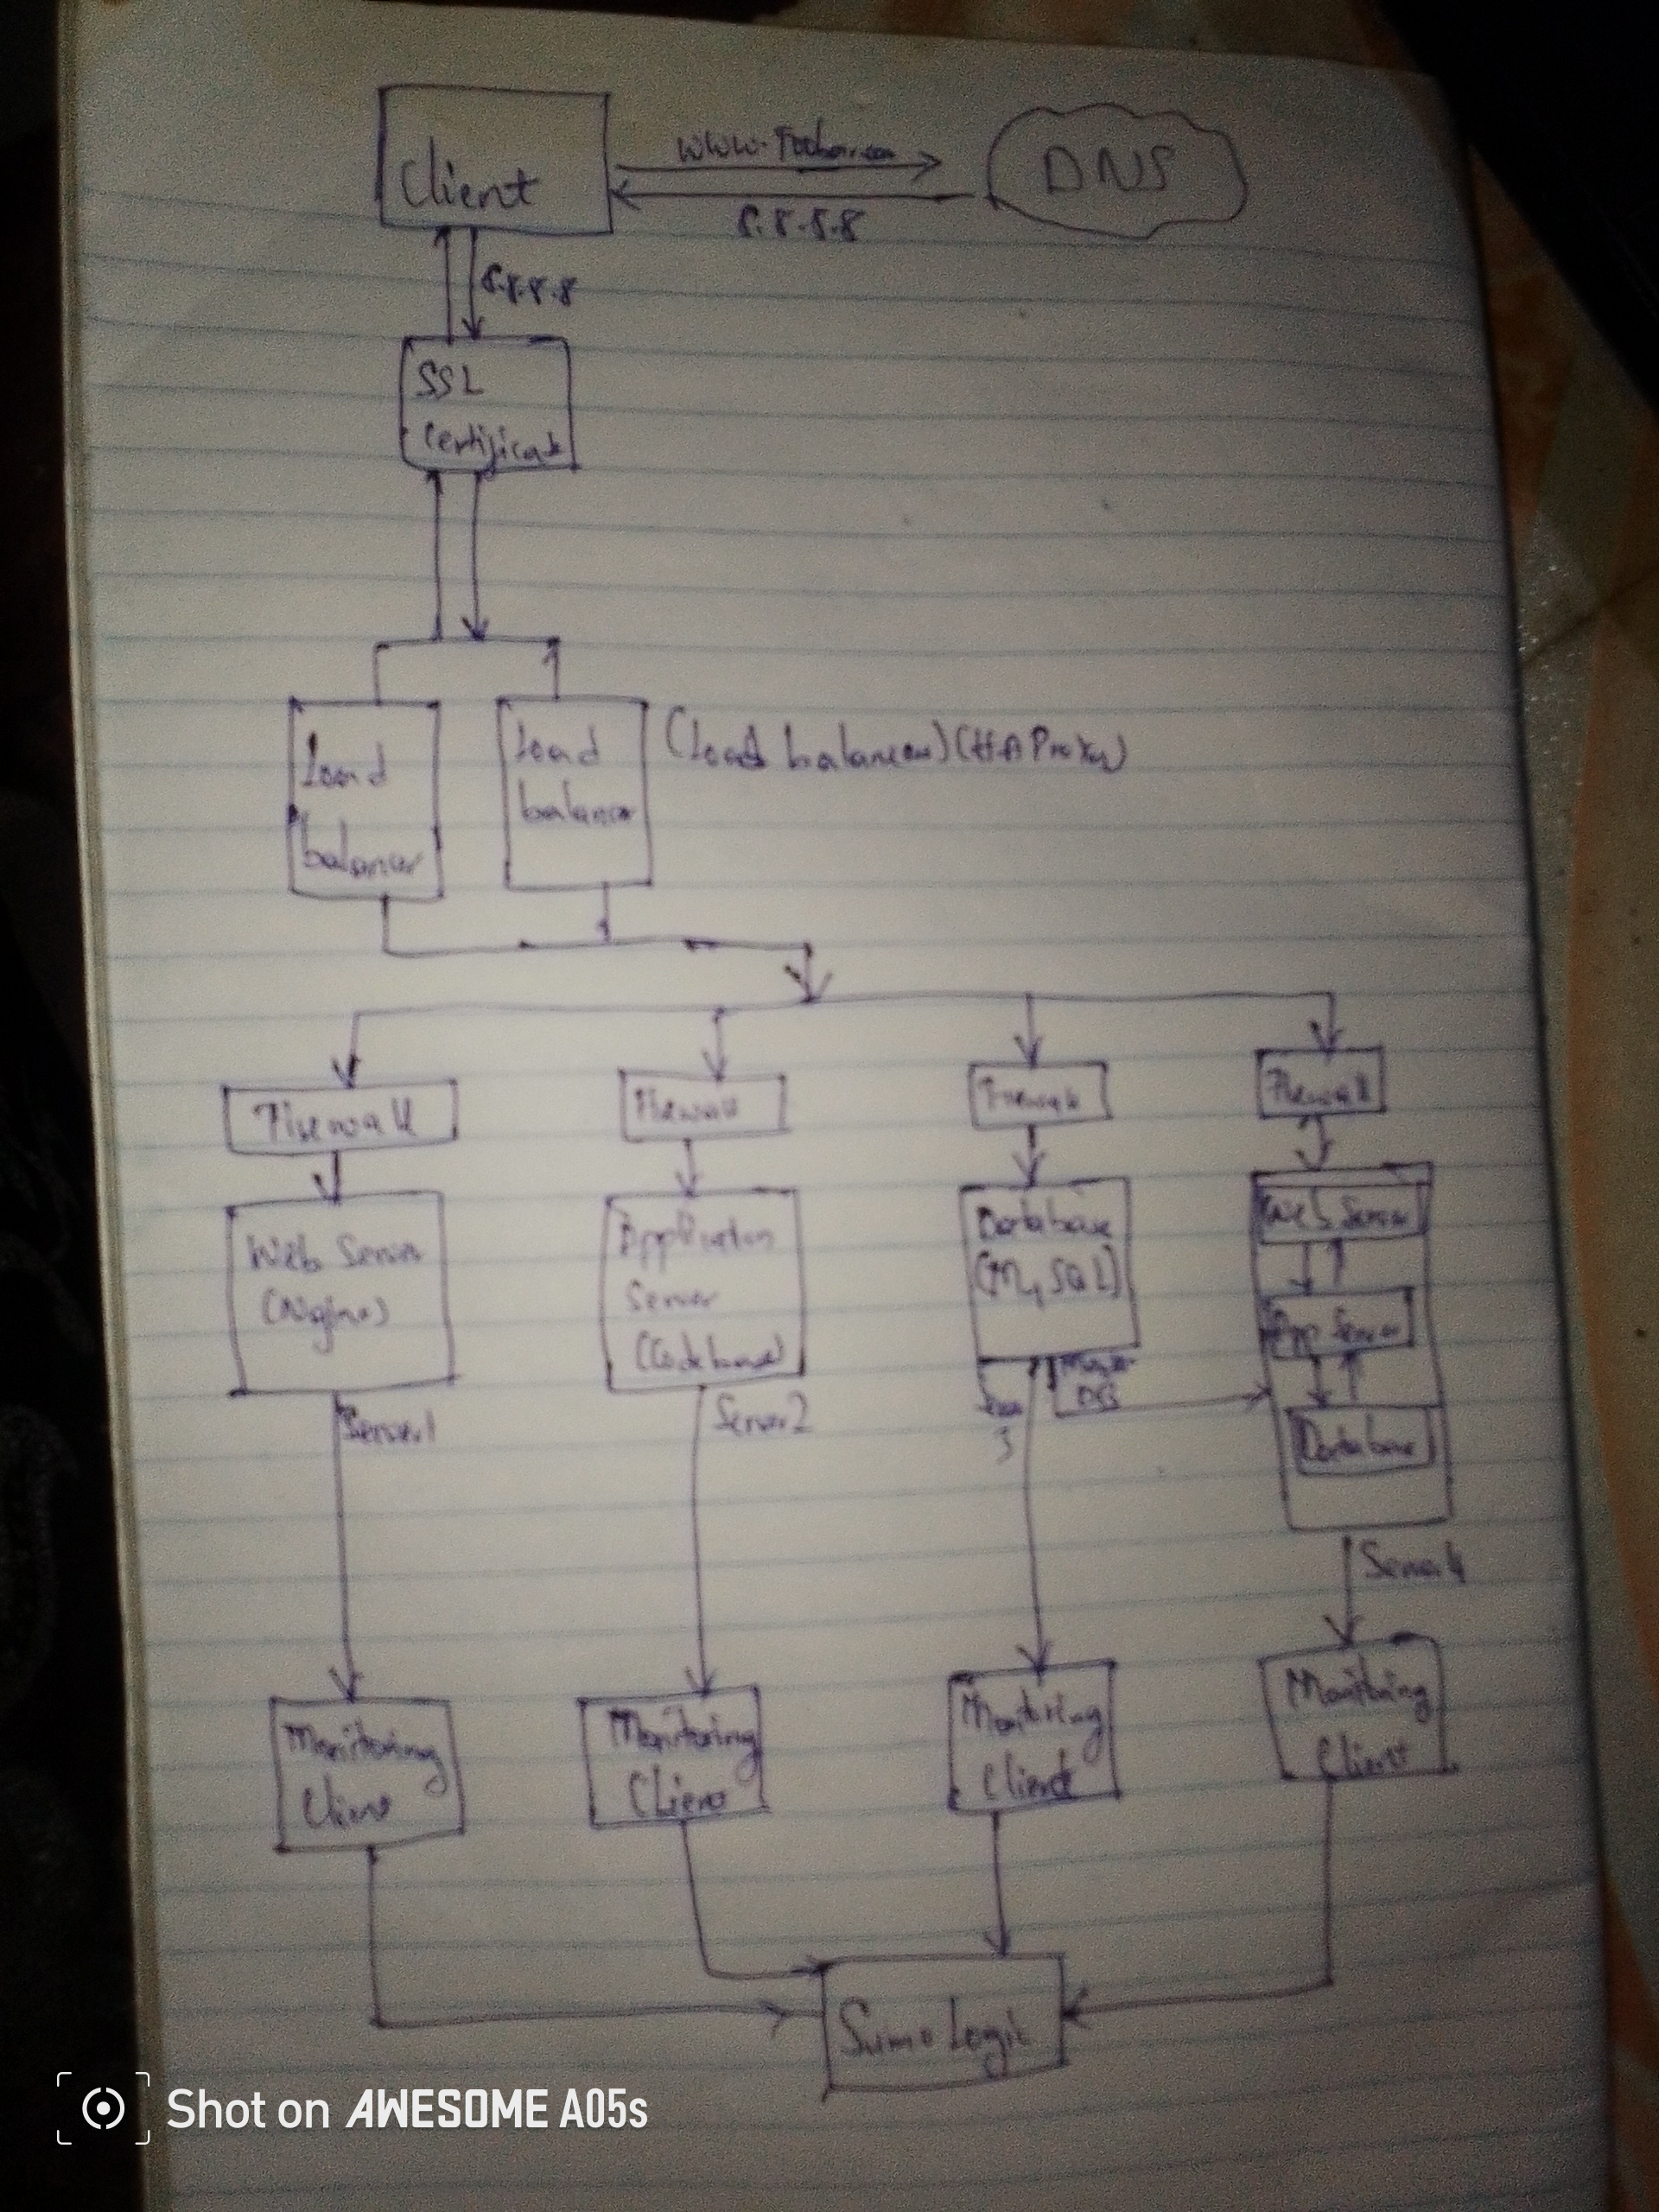 Client
www.Foobar.com
DNS
8.8.8.8
8.8.8.8
SSL
Certificate
Load
balancer
Load
balancer
(Load balancer) (HAProxy)
Firewall
Firewall
Firewall
Firewall
Web Server
(Nginx)
Application
Server
(Codebase)
Database
(MySQL)
Web Server
App Server
Database
Server1
Server2
3
Master
DB
Server4
Monitoring
Client
Monitoring
Client
Monitoring
Client
Monitoring
Client
Sumo Logic
Shot on AWESOME A05s